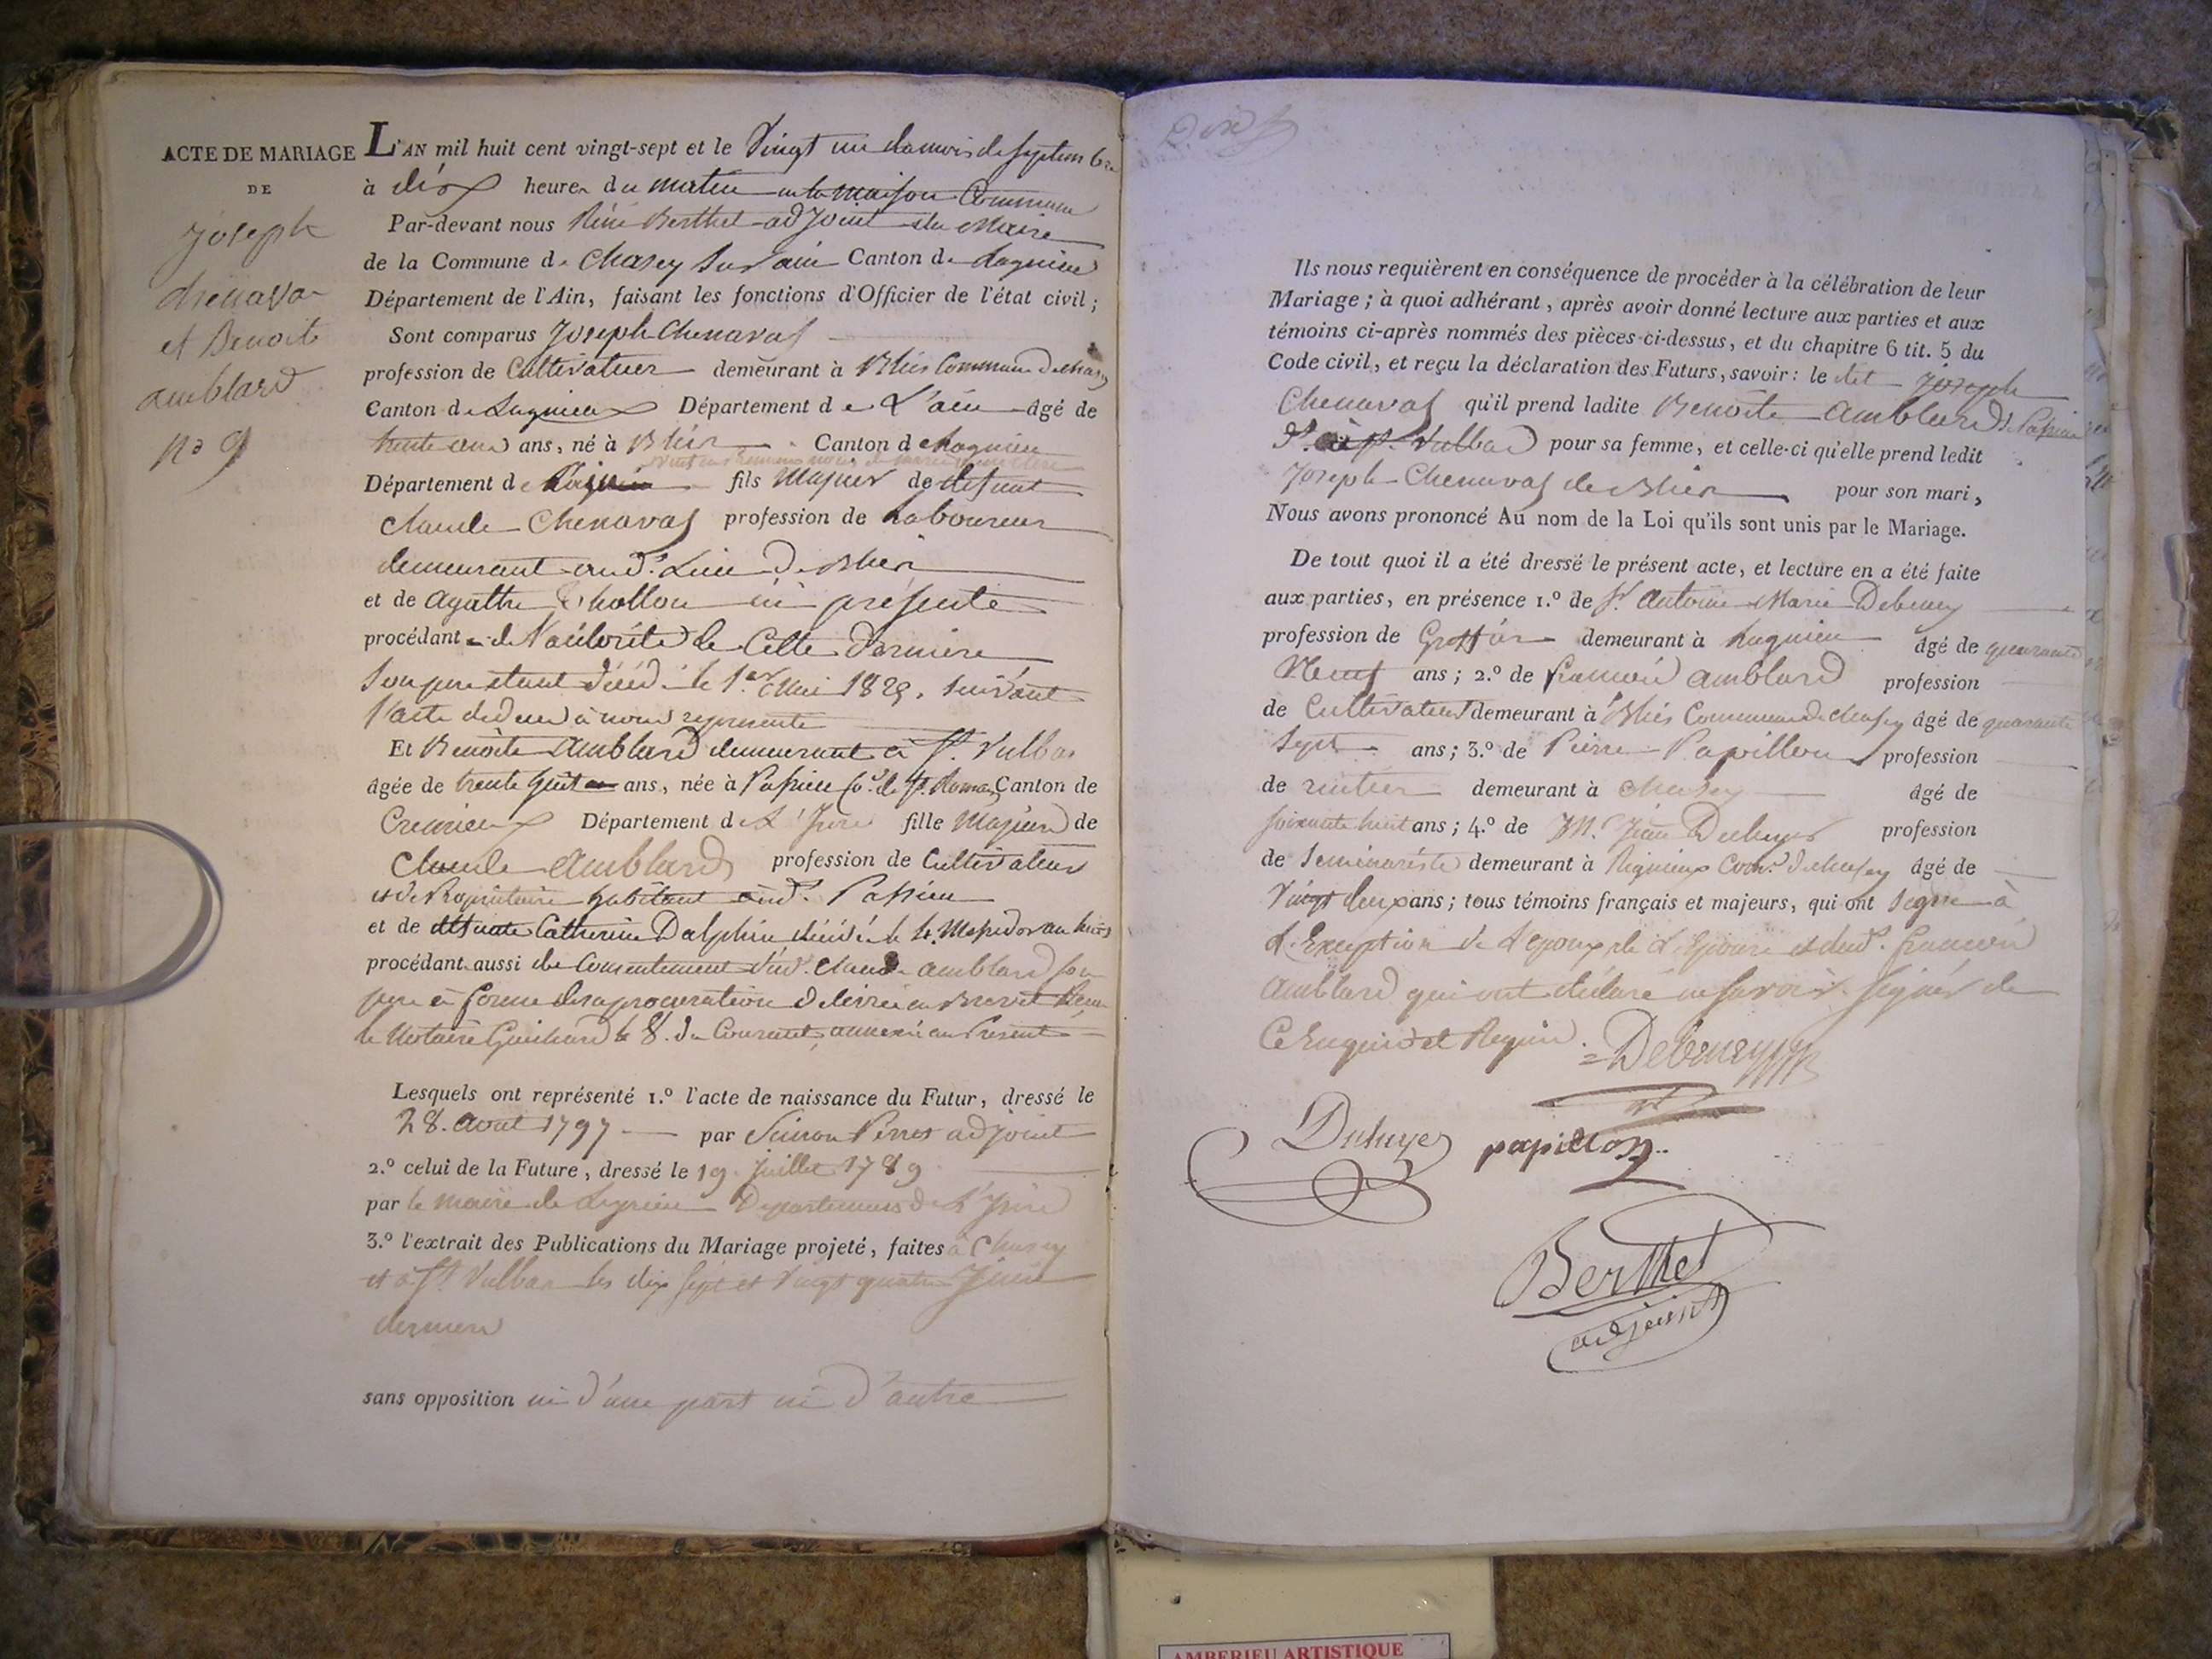 ACTE DE MARIAGE
DE
joseph
chenavas
et Benoite
amblard
no 9
L'AN mil huit cent vingt-sept et le Vingt un du mois de septembre
à dix heures du matin en la maison Commune
Par-devant nous Réné Berthet adjoint du Maire
de la Commune de Chasey sur ain Canton de Lagnieu
Département de l'Ain, faisant les fonctions d'Officier de l'état civil;
Sont comparus Joseph Chenavas
profession de Cultivateur demeurant à Blies Commune de chasey
Canton de Lagnieux Département de L'ain âgé de
trente ans, né à Blies Canton de Lagnieu
Département de fils Majeur de defunt
claude Chenavas profession de Laboureur
demeurant aud. Lieu de Blies
et de agathe Thollon ici presente
procédant de l'autorité de Cette derniere
son pere etant décédé le 1er Mai 182 suivant
l'acte de deces à nous representé
Et Benoite amblard demeurant à St. Vulbas
âgée de trente huit ans, née à Passieu Co. de St. Romain Canton de
Cremieux Département de L'Isere fille Majeure de
Claude amblard profession de Cultivateur
et de Propriétaire habitant aud. Passieu
et de défunte Catherine Dalphin décédée le 4. Messidor an huit
procédant aussi du Consentement dud. Claude amblard son
pere à forme de sa procuration délivrée en Brevet
le Notaire Guichard le 8. du Courant, annexée au Present
Lesquels ont représenté 1.º l'acte de naissance du Futur, dressé le
28. avril 1797 par Simon Perret adjoint
2.º celui de la Future, dressé le 19 Juillet 1789
par le maire de Leyrieu Departement de L'Isere
3.º l'extrait des Publications du Mariage projeté, faites à Chasey
et à St. Vulbas les dix sept et vingt quatre Juin
dernier
sans opposition ni d'une part ni d'autre
Ils nous requièrent en conséquence de procéder à la célébration de leur
Mariage; à quoi adhérant, après avoir donné lecture aux parties et aux
témoins ci-après nommés des pièces ci-dessus, et du chapitre 6 tit. 5 du
Code civil, et reçu la déclaration des Futurs, savoir: le dit joseph
Chenavas qu'il prend ladite Benoite amblard de Passieu
St. Vulbas pour sa femme, et celle-ci qu'elle prend ledit
Joseph Chenavas de Blies pour son mari,
Nous avons prononcé Au nom de la Loi qu'ils sont unis par le Mariage.
De tout quoi il a été dressé le présent acte, et lecture en a été faite
aux parties, en présence 1.º de Sr. Antoine Marie Debeney
profession de Greffier demeurant à Lagnieu âgé de quarante
Neuf ans; 2.º de francois amblard profession
de Cultivateur demeurant à Blies Commune de chasey âgé de quarante
Sept ans; 3.º de Pierre Papillon profession
de rentier demeurant à Chasey âgé de
soixante huit ans; 4.º de Mr. Jean Duhuyes profession
de Seminariste demeurant à Rignieux Com. de chasey âgé de
Vingt deux ans; tous témoins français et majeurs, qui ont signé à
L'Exception de L'epoux de L'Epouse et dud. francois
amblard qui ont déclaré ne savoir signer de
Ce Enquis et Requis.
Debeney
Duhuyes papillon
Berthet
adjoint
AMBERIEU ARTISTIQUE